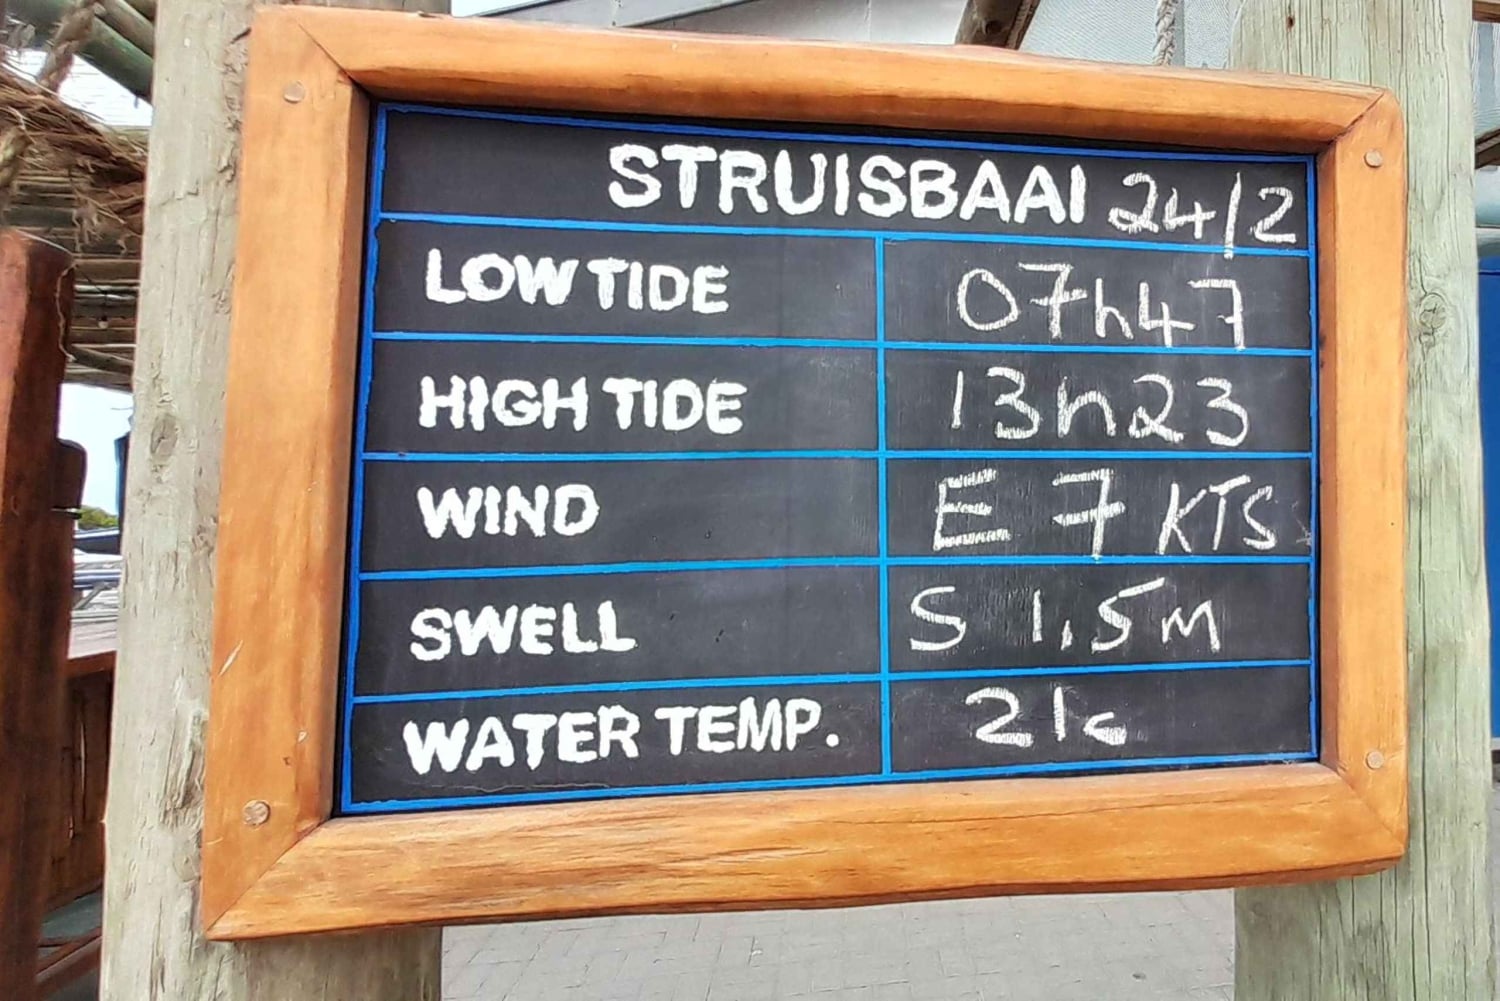 STRUISBAAI 24/2
LOW TIDE 07h47
HIGH TIDE 13h23
WIND E 7 KTS
SWELL S 1.5M
WATER TEMP. 21c